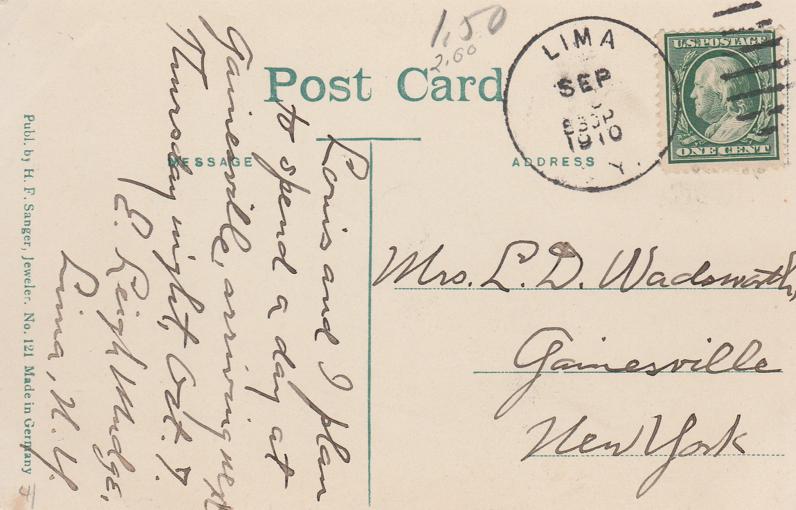 1.50
2.00
Post Card
MESSAGE
ADDRESS
LIMA
SEP
1910
Y.
U.S. POSTAGE
ONE CENT
Louis and I plan
to spend a day at
Gainesville, arriving next
Thursday night, Oct. 7.
E. Leigh Mudge,
Lima, N.Y.
Mrs. L. D. Wadsworth,
Gainesville
New York
Publ. by H. F. Sanger, Jeweler. No. 121 Made in Germany